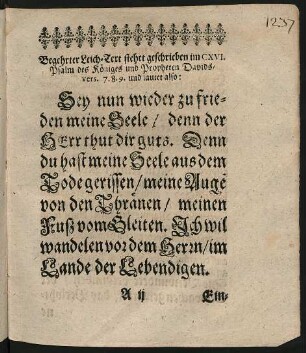 1237
Begehrter Leich-Text stehet geschrieben im CXVI.
Psalm des Königes und Propheten Davids,
vers. 7. 8. 9. und lautet also:
Sey nun wieder zu frie-
den meine Seele / denn der
HErr thut dir guts. Denn
du hast meine Seele aus dem
Tode gerissen / meine Auge
von den Thränen / meinen
Fuß vom Gleiten. Ich wil
wandelen vor dem Herrn / im
Lande der Lebendigen.
A ij
Ein-